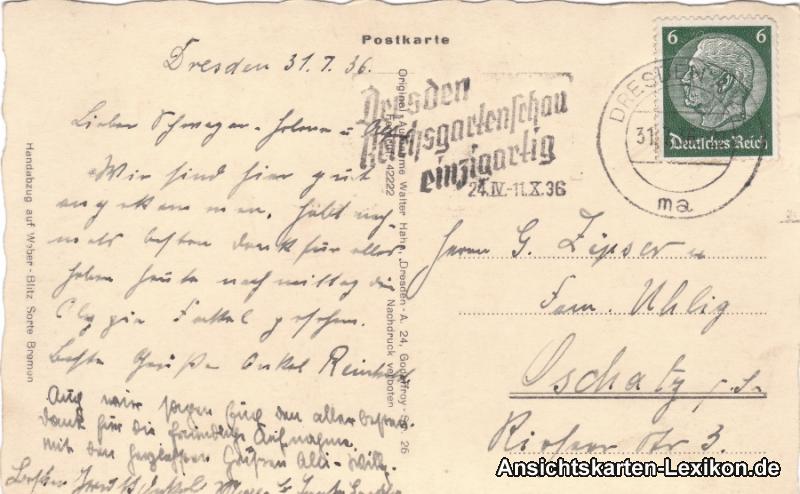 Postkarte
Dresden 31.7.36.
Dresden
Reichsgartenschau
einzigartig
24.IV.-11.X.36
DRESDEN
31
ma
6 6
Deutsches Reich
Lieber Schwager
Wir sind hier gut
angekommen. Habt noch-
mals besten Dank für alles
haben heute nachmittag die
Olympia Fackel gesehen.
Beste Grüße Onkel Reinhold
Auch wir sagen Euch den allerbesten
Dank für die freundliche Aufnahme.
mit den herzlichsten Grüßen
Herrn G. Zipser u
Fam. Uhlig
Oschatz i. Sa.
Str 3.
Original Aufnahme Walter Hahn, Dresden-A. 24,
Nachdruck verboten
Handabzug auf Weber-Blitz Sorte Bremen
Ansichtskarten-Lexikon.de